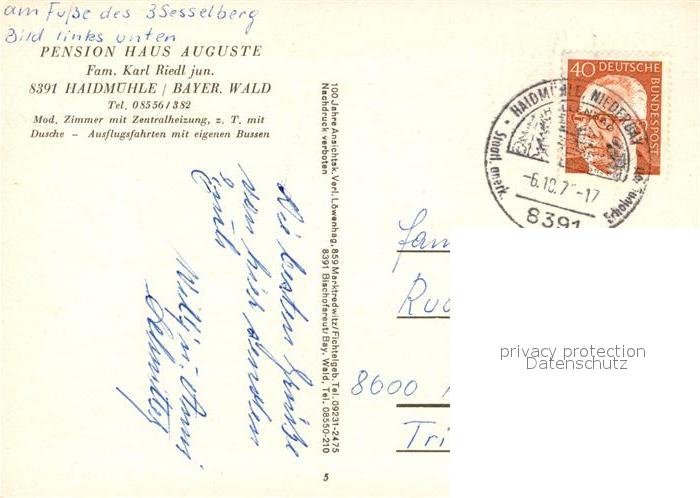 am Fuße des 3Sesselberg
Bild links unten
PENSION HAUS AUGUSTE
Fam. Karl Riedl jun.
8391 HAIDMÜHLE / BAYER. WALD
Tel. 08556 / 382
Mod. Zimmer mit Zentralheizung, z. T. mit
Dusche – Ausflugsfahrten mit eigenen Bussen
100 Jahre Ansichtsk. Verl. Löwenhag, 859 Marktredwitz/Fichtelgeb. Tel. 09231-2475
Nachdruck verboten 8391 Bischofsreut/Bay. Wald, Tel. 08550-210
5
Die besten Grüße
von hier senden
Euch
Willy u.
40 DEUTSCHE
BUNDESPOST
HAIDMÜHLE NIEDERBAY
Staatl. anerk.
-6.10.7 -17
8391
Fam
Rud
8600
Tri
privacy protection
Datenschutz